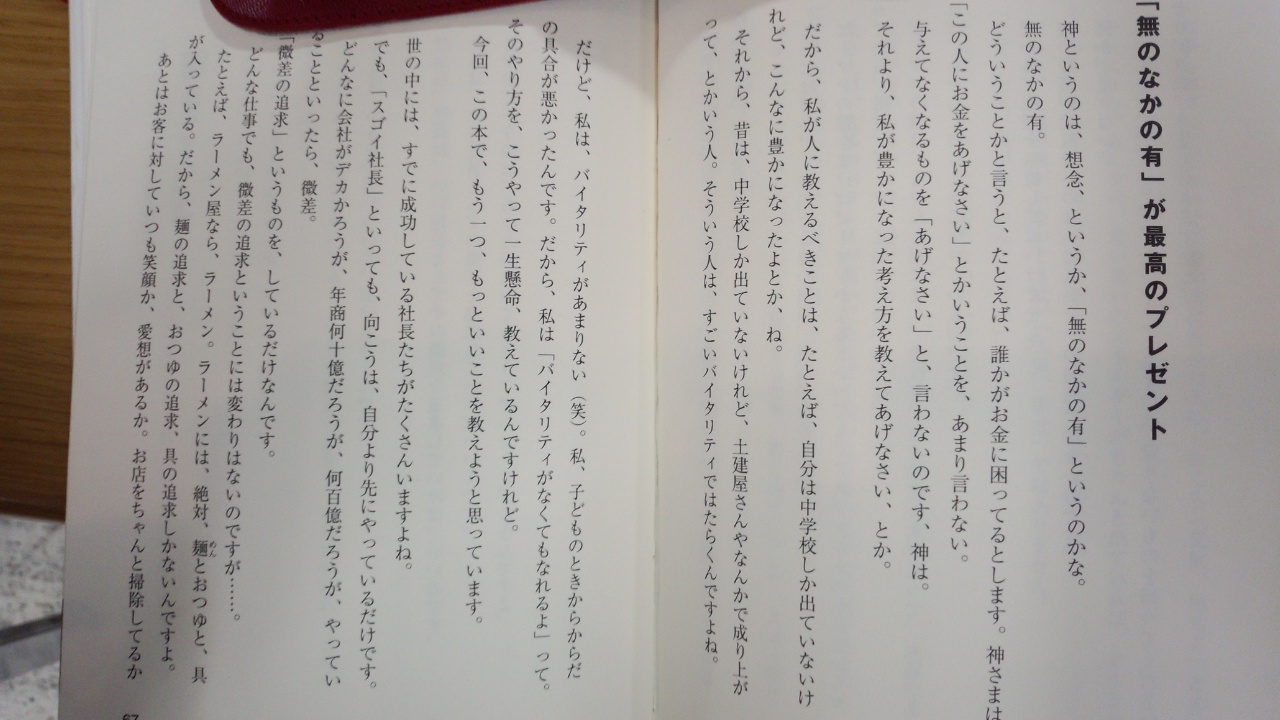 「無のなかの有」が最高のプレゼント
神というのは、想念、というか、「無のなかの有」というのかな。
無のなかの有。
どういうことかと言うと、たとえば、誰かがお金に困ってるとします。神さまは
「この人にお金をあげなさい」とかいうことを、あまり言わない。
与えてなくなるものを「あげなさい」と、言わないのです、神は。
それより、私が豊かになった考え方を教えてあげなさい、とか。
だから、私が人に教えるべきことは、たとえば、自分は中学校しか出ていないけ
れど、こんなに豊かになったよとか、ね。
それから、昔は、中学校しか出ていないけれど、土建屋さんやなんかで成り上が
って、とかいう人。そういう人は、すごいバイタリティではたらくんですよね。
だけど、私は、バイタリティがあまりない（笑）。私、子どものときからからだ
の具合が悪かったんです。だから、私は「バイタリティがなくてもなれるよ」って。
そのやり方を、こうやって一生懸命、教えているんですけれど。
今回、この本で、もう一つ、もっといいことを教えようと思っています。
世の中には、すでに成功している社長たちがたくさんいますよね。
でも、「スゴイ社長」といっても、向こうは、自分より先にやっているだけです。
どんなに会社がデカかろうが、年商何十億だろうが、何百億だろうが、やってい
ることといったら、微差。
「微差の追求」というものを、しているだけなんです。
どんな仕事でも、微差の追求ということには変わりはないのですが……。
たとえば、ラーメン屋なら、ラーメン。ラーメンには、絶対、麺めんとおつゆと、具
が入っている。だから、麺の追求と、おつゆの追求、具の追求しかないんですよ。
あとはお客に対していつも笑顔か、愛想があるか。お店をちゃんと掃除してるか
67